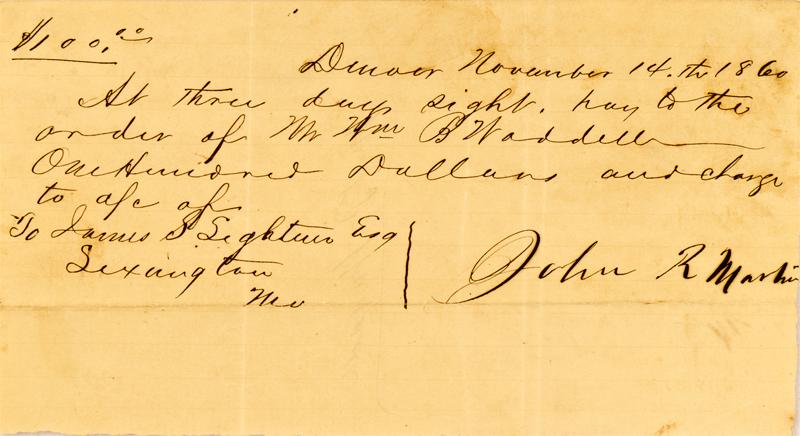 $100.00
Denver November 14.th 1860
At three days sight. pay to the
order of Mr Wm B Waddell
One Hundred Dollars and charge
to a/c of
To James S Lightner Esq
Lexington
Mo
John R Martin